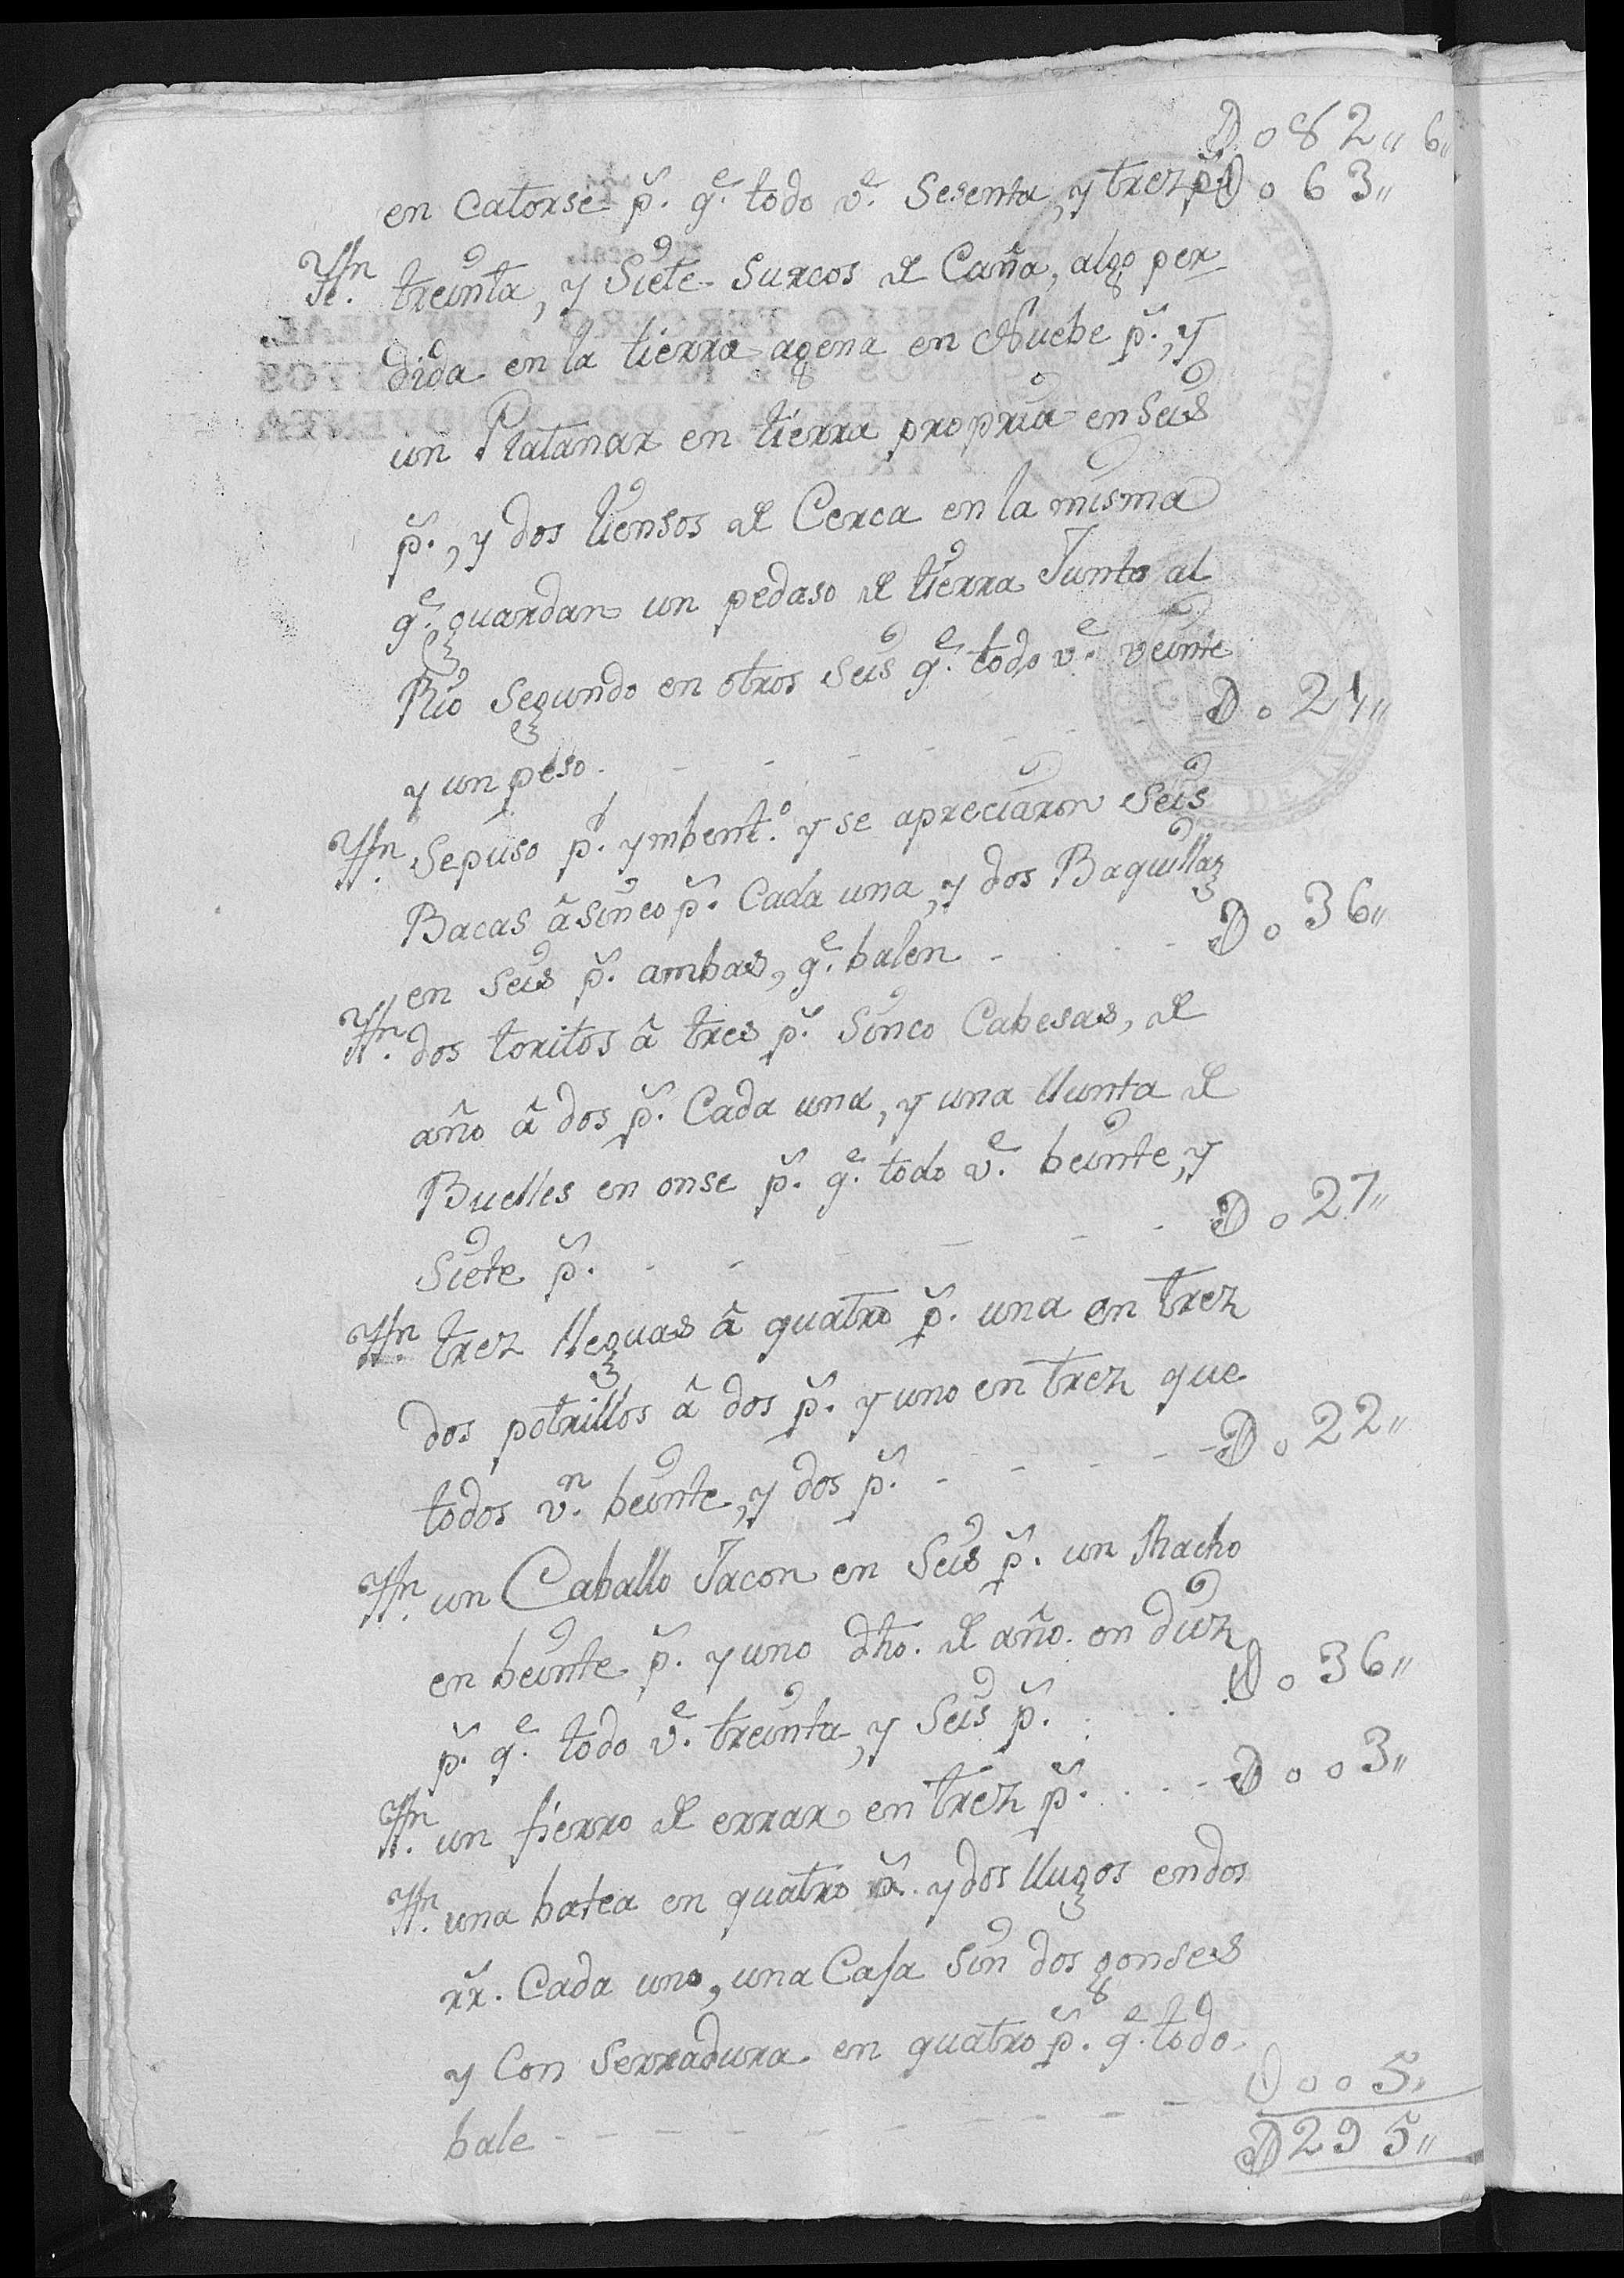 D o 82 ,, 6 ,,
en Catorse p.s q.e todo v.e Sesenta, y trez p.s D o 63 ,,
Yttn. treinta, y Siete Surcos de Caña, algo per-
dida en la tierra agena en Nuebe p.s, y
un Platanar en tierra propria en Seis
p.s, y dos liensos de Cerca en la misma
q.e guardan un pedaso de tierra Junto al
Rio Segundo en otros Seis q.e todo v.e veinte
y un peso. - - - - - D o 21 ,,
Yttn. Sepuso p.r ymbent.o y se apreciaron Seis
Bacas â sinco p.s Cada una, y dos Baquillaz
en Seis p.s ambas, q.e balen - - - D o 36 ,,
Yttn. dos toritos â tres p.s Sinco Cabesas, de
año â dos p.s Cada una, y una llunta de
Buelles en onse p.s q.e todo v.e beinte, y
Siete p.s - - - - - D o 27 ,,
Yttn. trez lleguas â quatro p.s una en trez
dos potrillos â dos p.s y uno en trez que
todos v.n beinte, y dos p.s - - - - D o 22 ,,
Yttn. un Caballo Jacon en Seis p.s un Macho
en beinte p.s y uno dho. de año. en diez
p.s q.e todo v.e treinta, y Seis p.s - - - D o 36 ,,
Yttn. un fierro de errar en trez p.s - - - D o o 3 ,,
Yttn. una batea en quatro rr.s y dos llugos en dos
rr.s Cada uno, una Casa Sin dos gonses
y Con Serradura en quatro p.s q.e todo
bale - - - - - - - - D o o 5 ,,
D 295 ,,